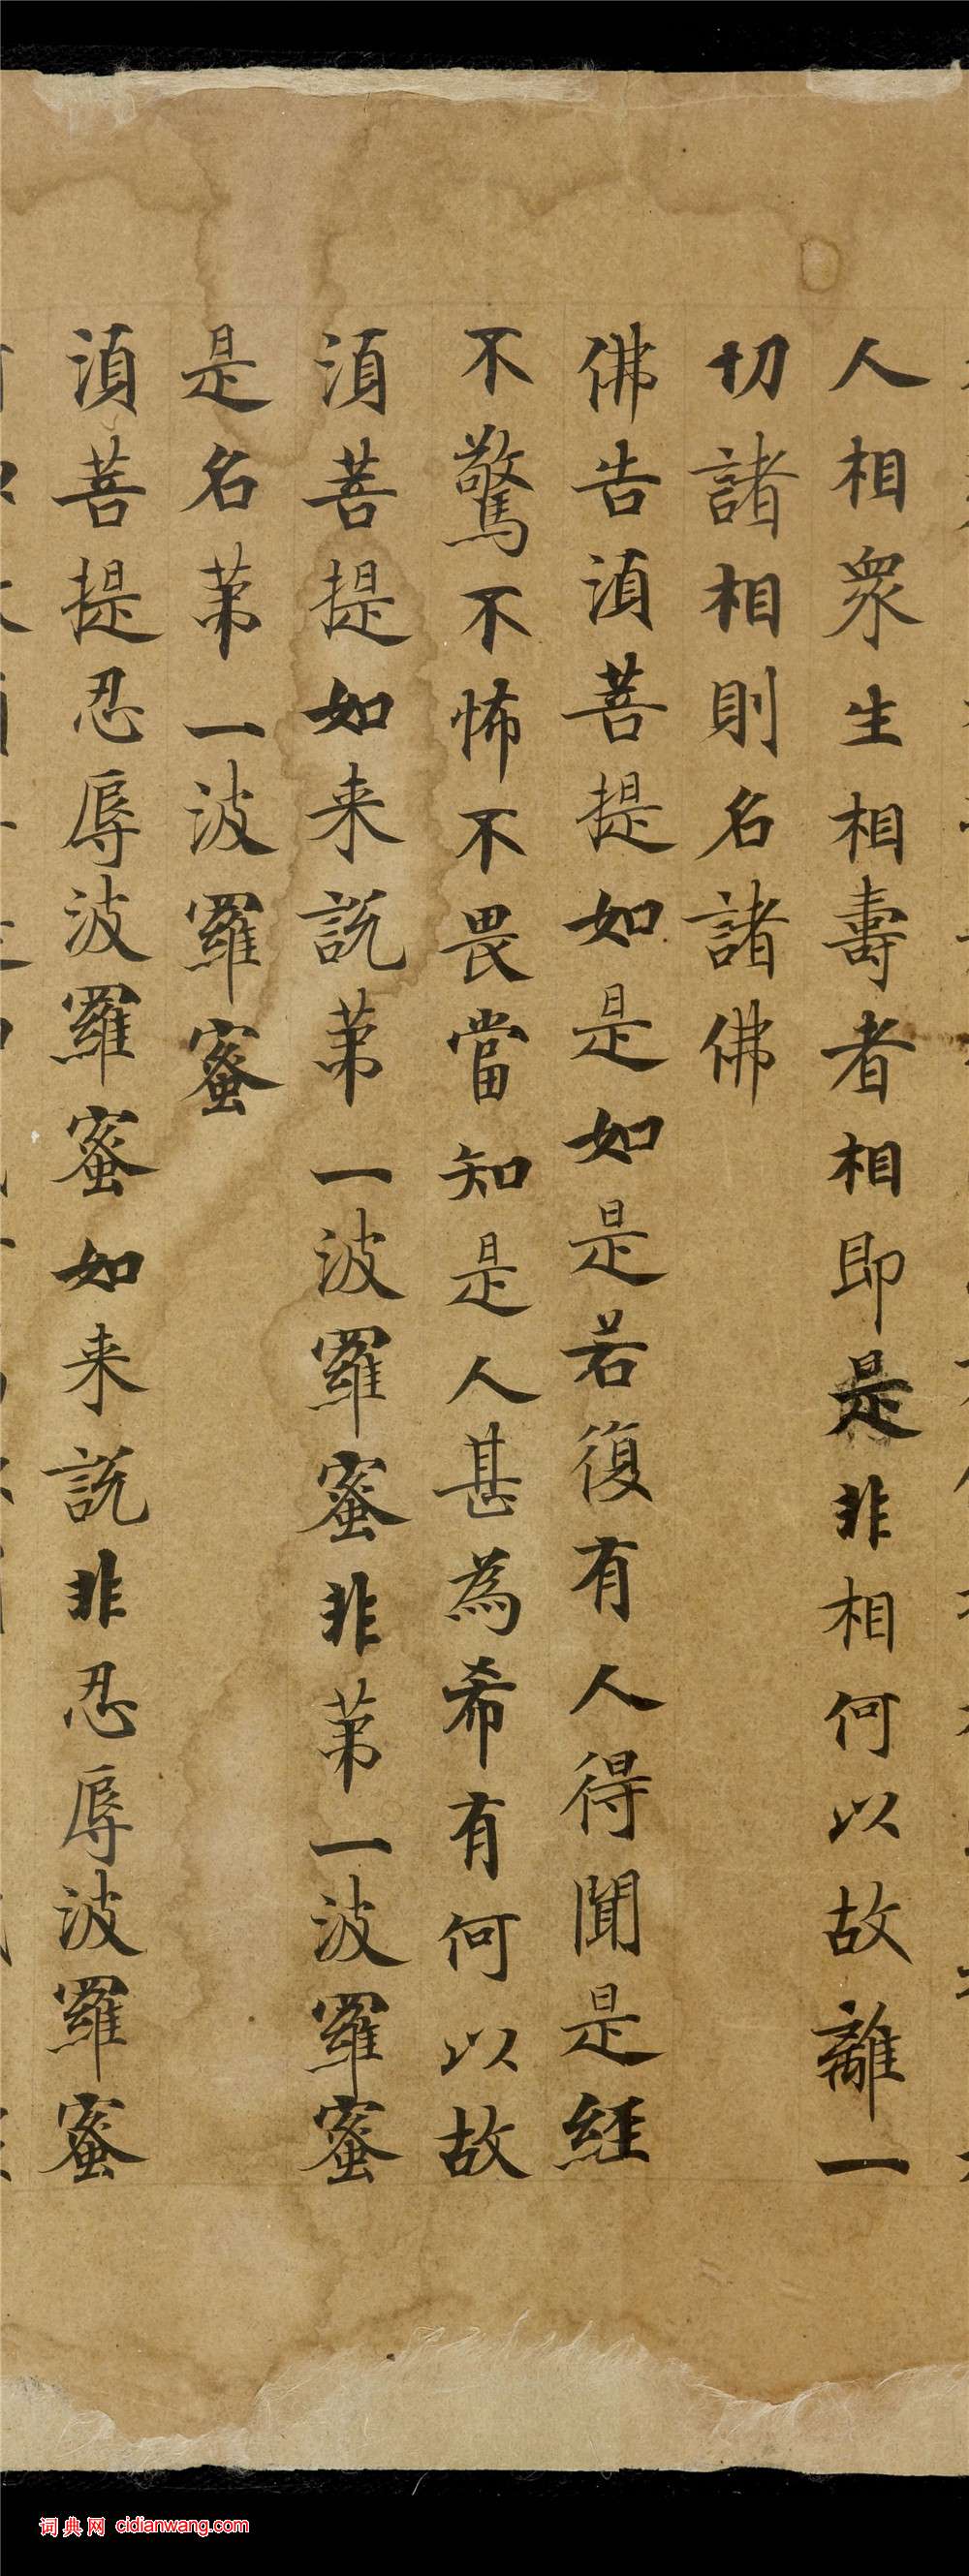 人相眾生相壽者相即是非相何以故離一
切諸相則名諸佛
佛告湏菩提如是如是若復有人得聞是經
不驚不怖不畏當知是人甚為希有何以故
湏菩提如来說苐一波羅蜜非苐一波羅蜜
是名苐一波羅蜜
湏菩提忍辱波羅蜜如来說非忍辱波羅蜜
词典网 cidianwang.com